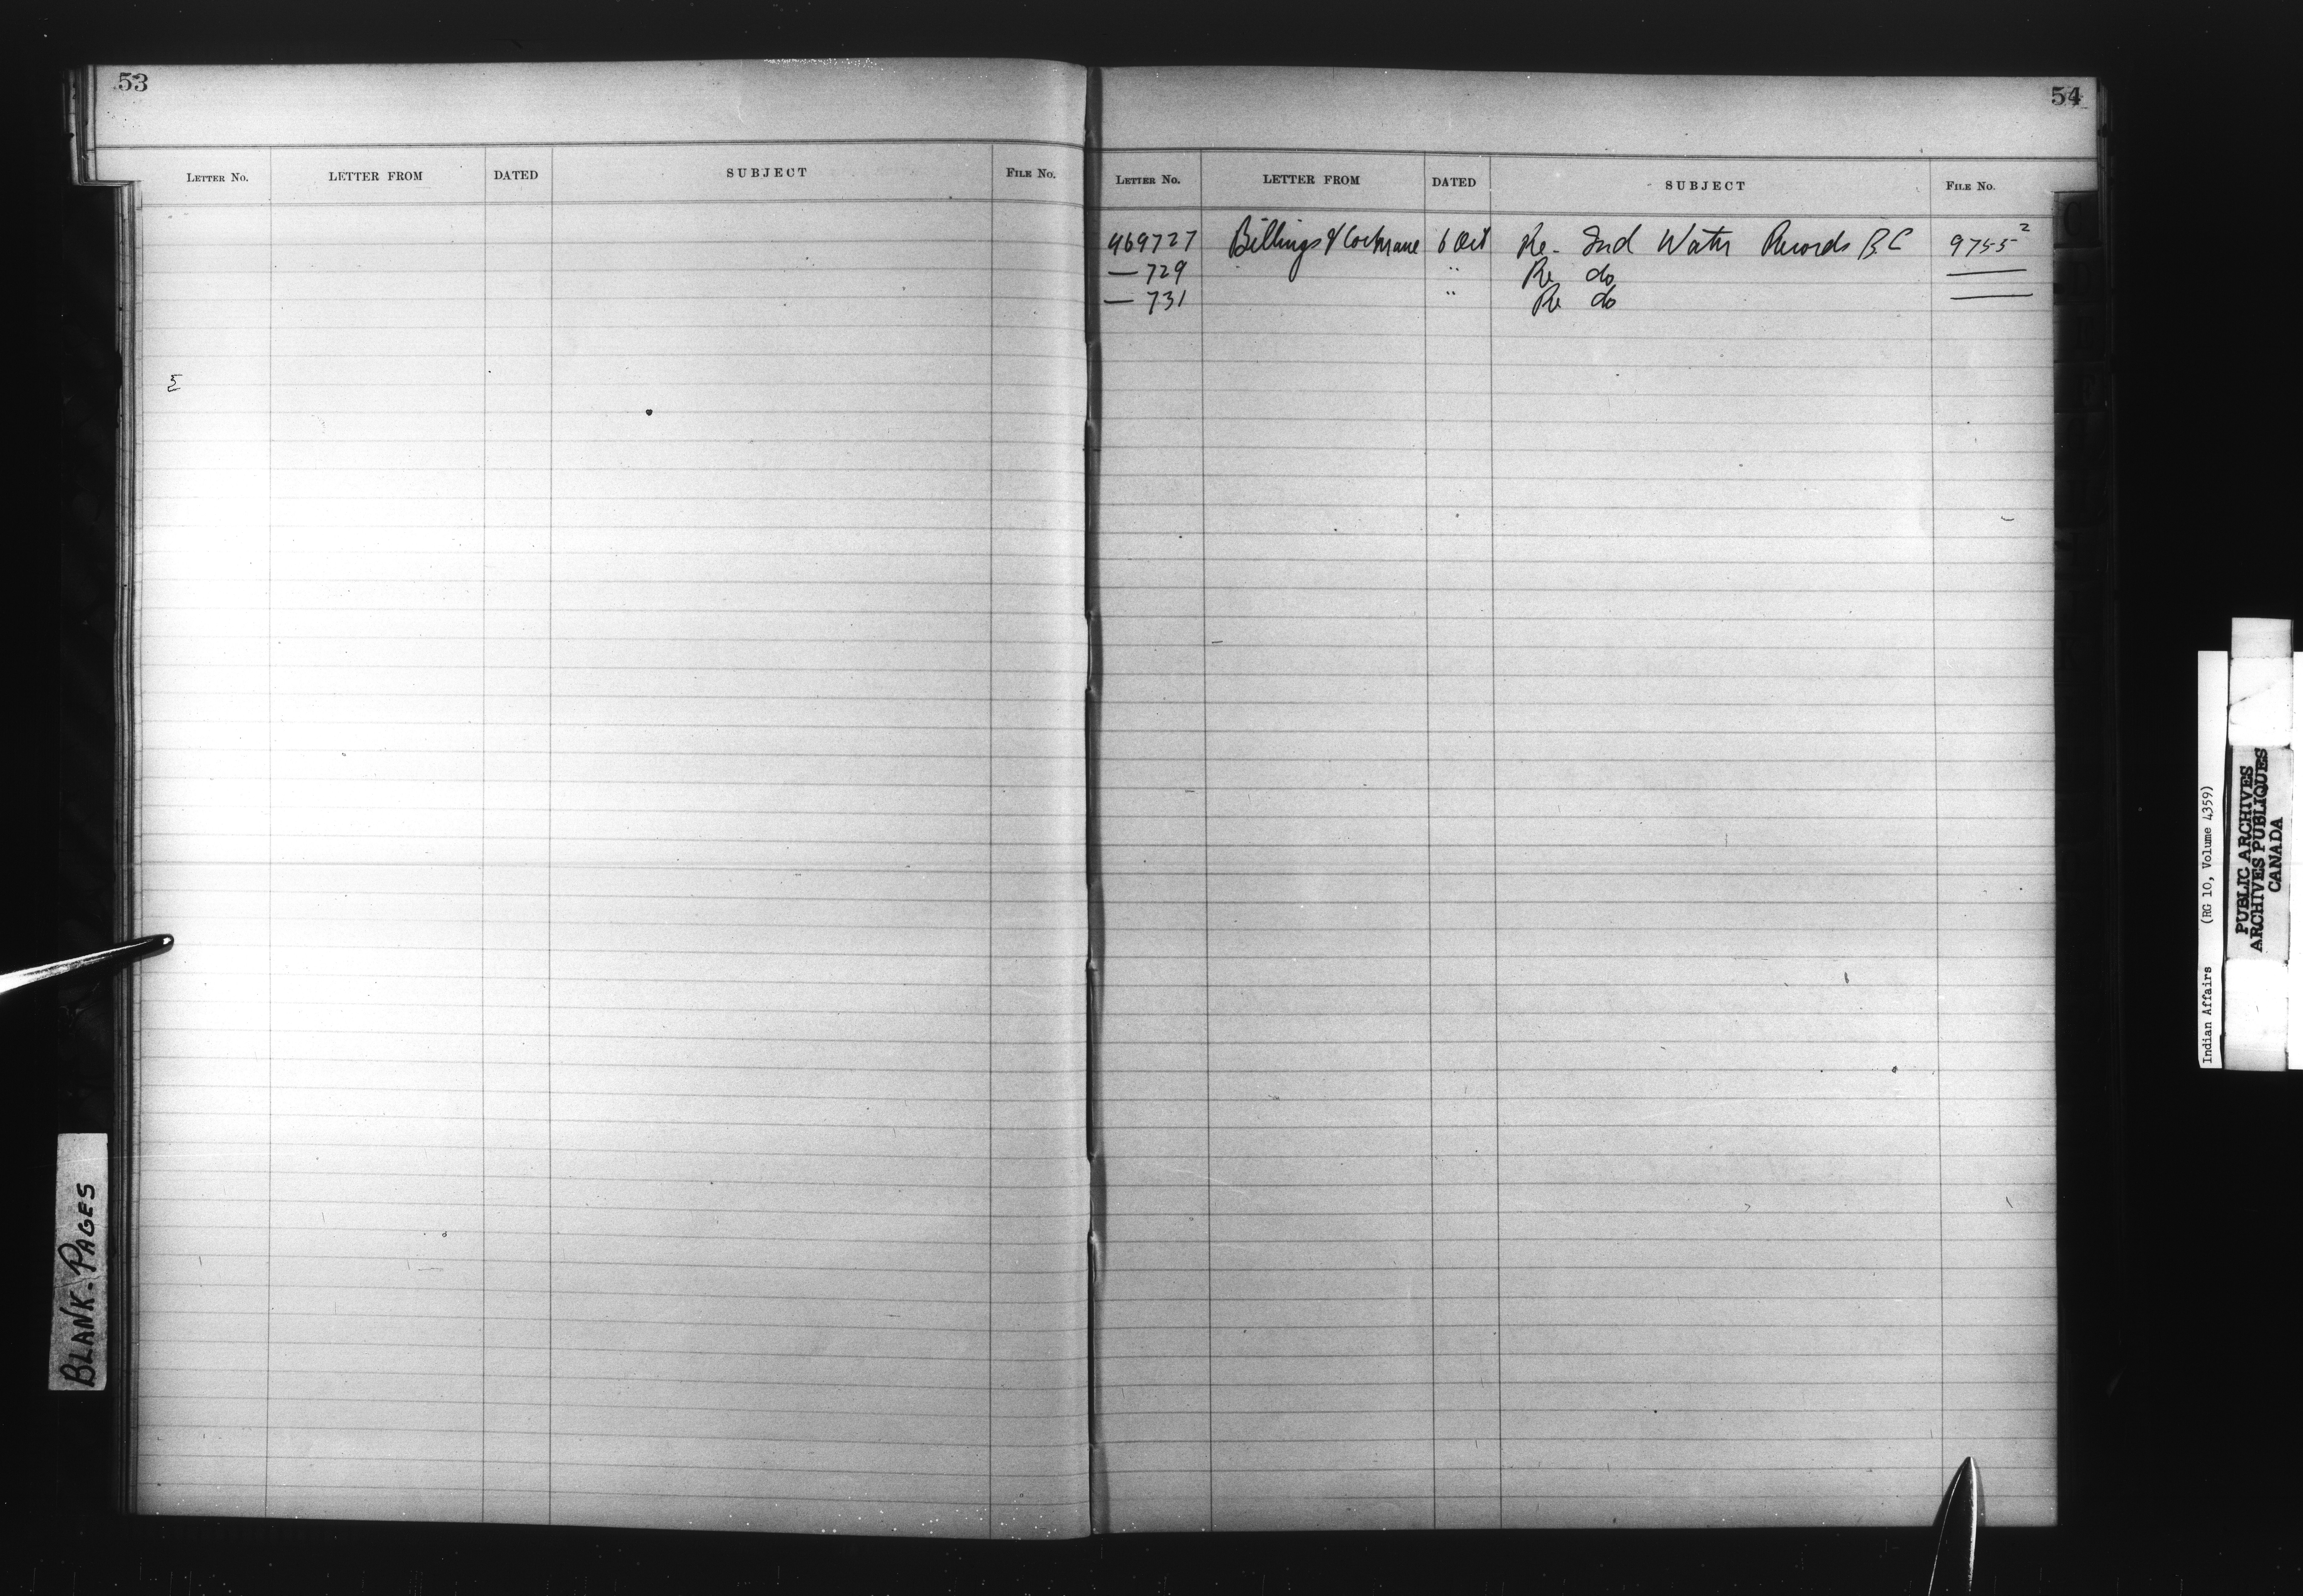 53
LETTER No. LETTER FROM DATED SUBJECT FILE No.
5
BLANK-PAGES
54
LETTER No. LETTER FROM DATED SUBJECT FILE No.
469727 Billings & Cochrane 6 Oct Re- Ind Water Records B C 9755²
— 729 " Re do —
— 731 " Re do —
Indian Affairs (RG 10, Volume 4359)
PUBLIC ARCHIVES
ARCHIVES PUBLIQUES
CANADA